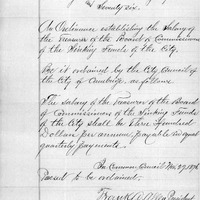 & Seventy six.
An Ordinance establishing the Salary of
the Treasurer of the Board of Commissioners
of the Sinking Funds of the City.
Be it ordained by the City Council of
the City of Cambridge as follows
The Salary of the Treasurer of the Board
of Commissioners of the Sinking Funds
of the City shall be Three Hundred
Dollars per annum, payable in equal
quarterly payments.
In Common Council
Passed to be ordained.
Frank A. Allen President